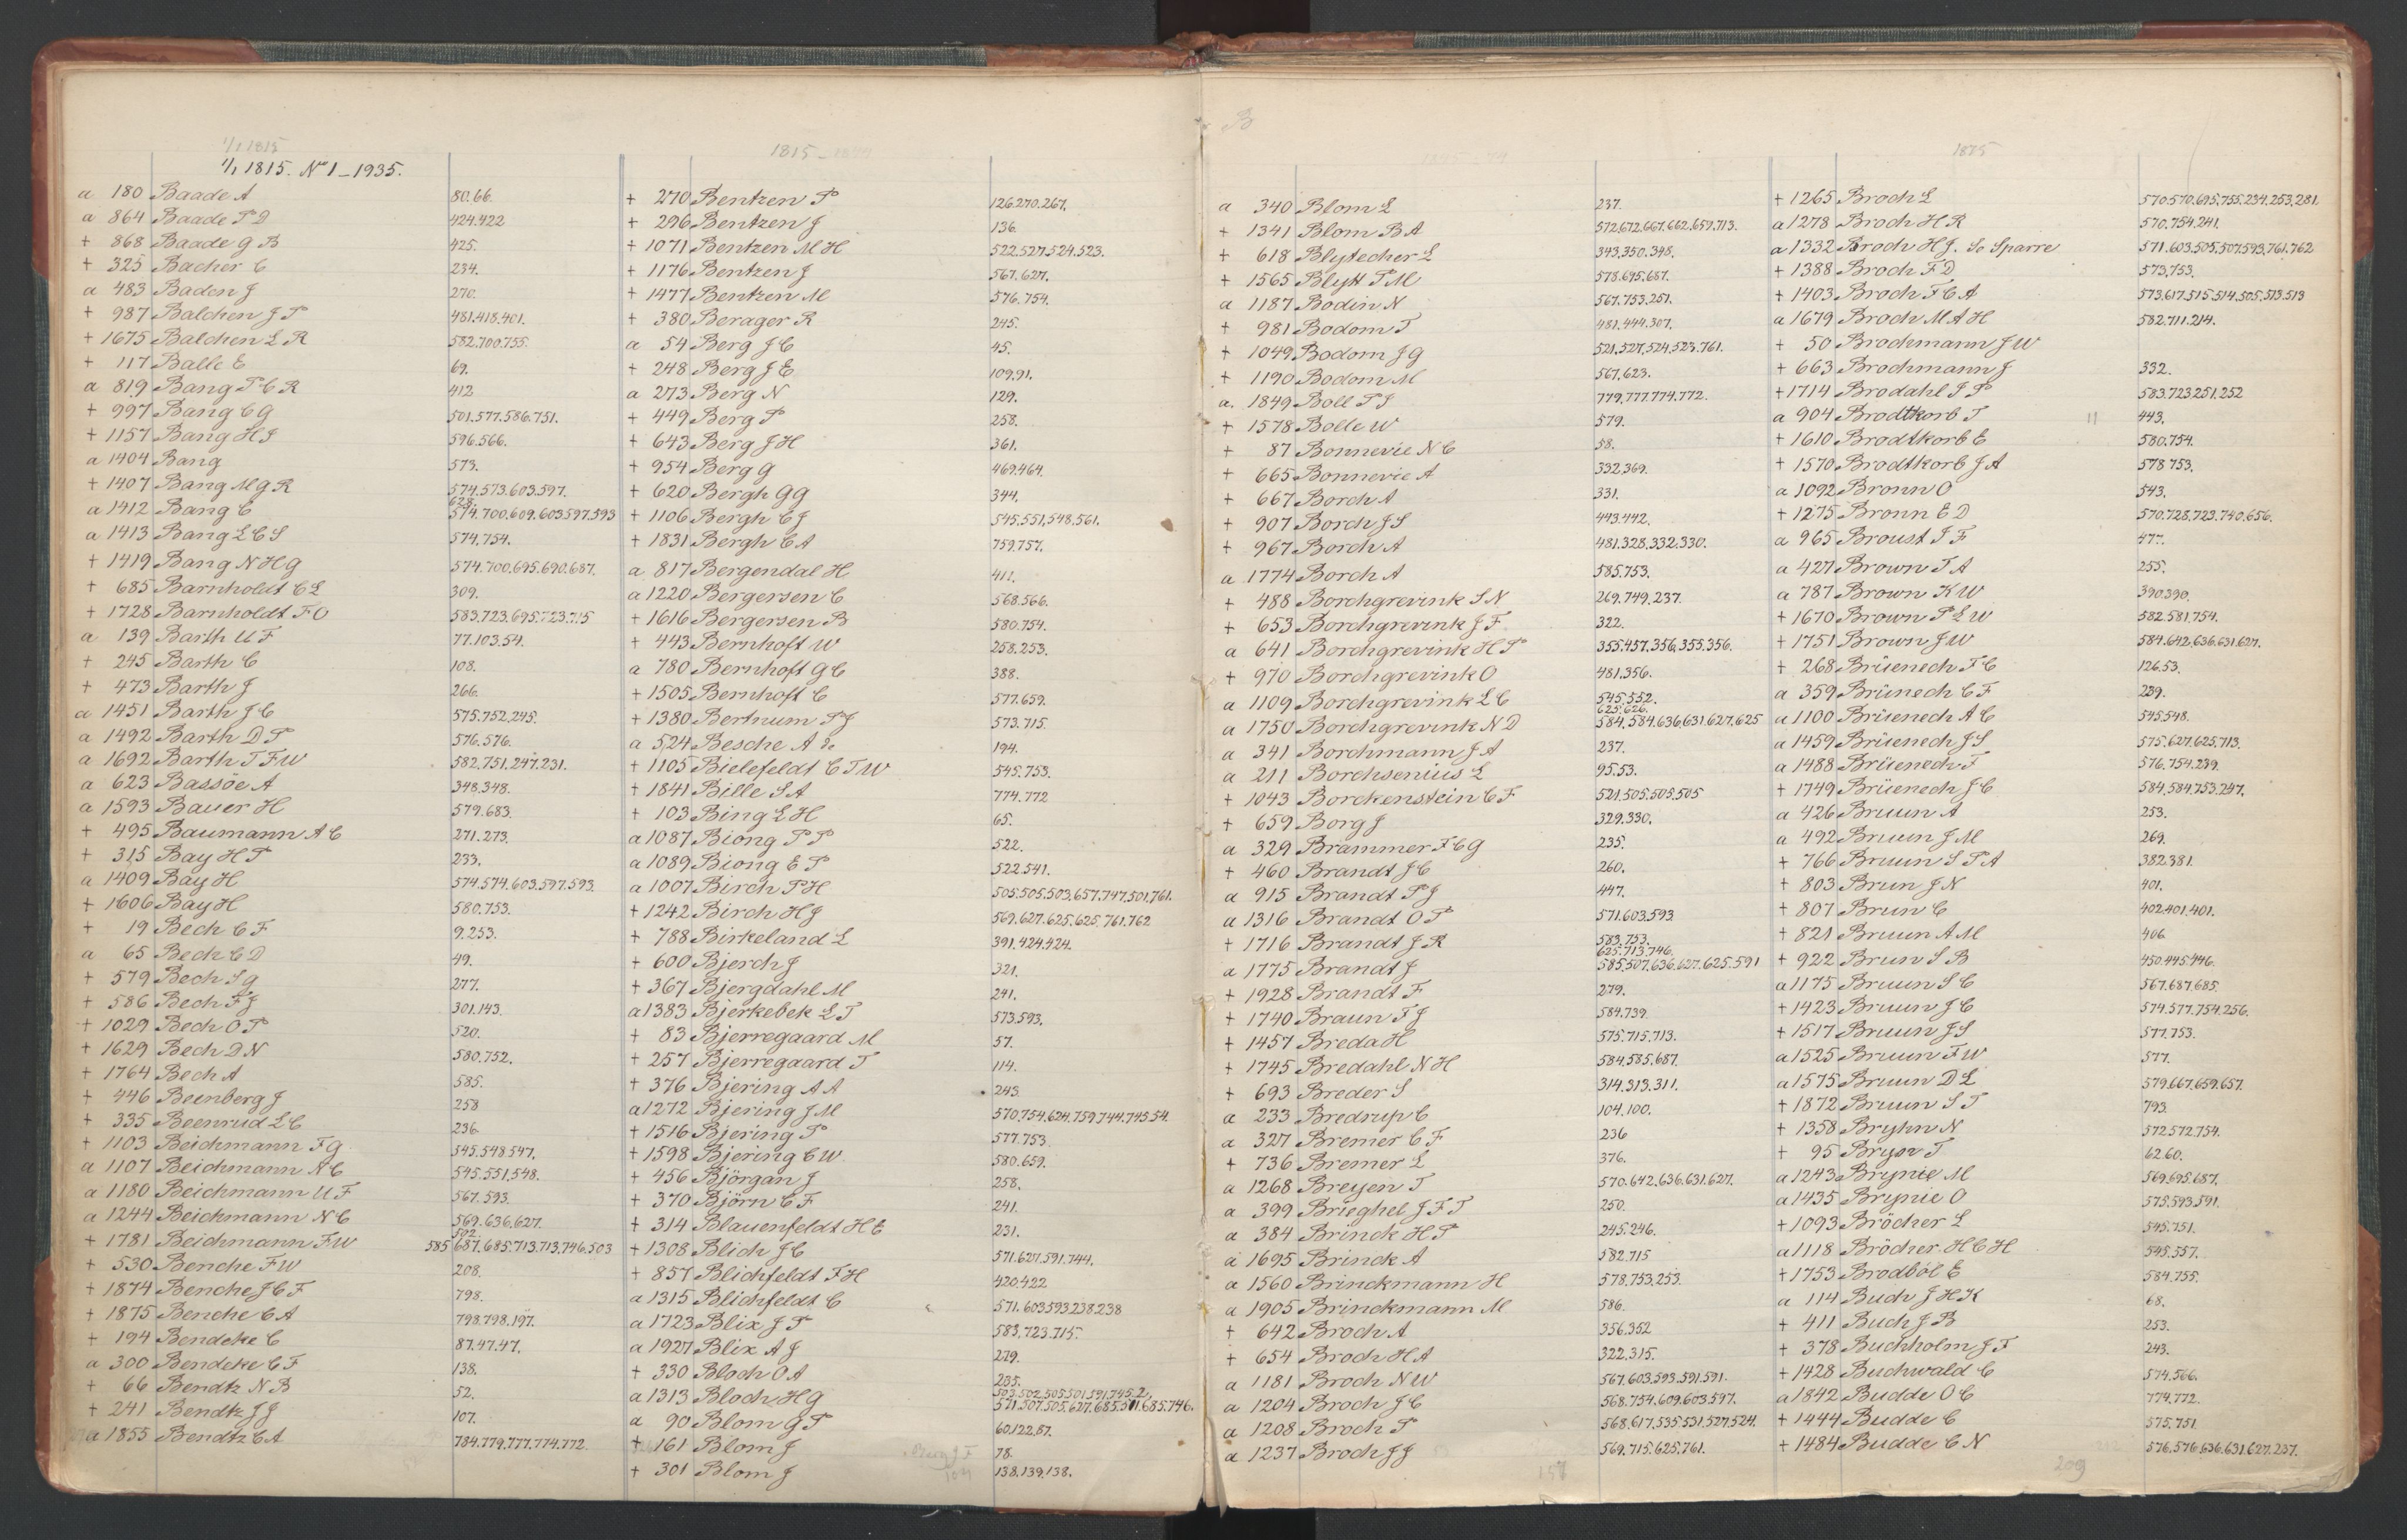 1/1 1815
1/1 1815. No 1 - 1935.
a 180 Baade A 80.66.
a 864 Baade P D 424.422
+ 868 Baade G B 425.
+ 325 Bacher C 234.
a 483 Baden J 270.
+ 987 Balchen J P 481.418.401.
+ 1675 Balchen L R 582.700.755.
+ 117 Balle E 69.
a 819 Bang P C R 412
+ 997 Bang C G 501.577.586.751.
+ 1157 Bang H J 596.566.
a 1404 Bang 573.
+ 1407 Bang M G R 574.573.603.597.
628.
a 1412 Bang C 574.700.609.603.597.593
a 1413 Bang L C S 574.754.
+ 1419 Bang N H G 574.700.695.690.687.
+ 685 Barnholdt C L 309.
+ 1728 Barnholdt F O 583.723.695.723.715
a 139 Barth U F 77.103.54.
+ 245 Barth C 108.
+ 473 Barth J 266.
a 1451 Barth J C 575.752.245.
a 1492 Barth D P 576.576.
a 1692 Barth T F W 582.751.247.231.
a 623 Bassöe A 348.348.
a 1593 Bauer H 579.683.
+ 495 Baumann A C 271.273.
+ 315 Bay H P 233.
a 1409 Bay H 574.574.603.597.593.
+ 1606 Bay H 580.753.
+ 19 Bech C F 9.253.
a 65 Bech C D 49.
+ 579 Bech S G 277.
+ 586 Bech F J 301.143.
+ 1029 Bech O P 520.
+ 1629 Bech D N 580.752.
+ 1764 Bech A 585.
+ 446 Beenberg J 258
+ 335 Beenrud L C 236
+ 1103 Beichmann F G 545.548.547.
a 1107 Beichmann A C 545.551.548.
a 1180 Beichmann U F 567.593.
a 1244 Beichmann N C 569.636.627.
592.
+ 1781 Beichmann F W 585 687.685.713.713.746.503
+ 530 Benche F W 208.
+ 1874 Benche J C F 798.
+ 1875 Benche C A 798.798.197.
+ 194 Bendeke C 87.47.47.
a 300 Bendeke C F 138.
+ 66 Bendtz N B 52.
+ 241 Bendtz J J 107.
a 1855 Bendtz C A 784.779.777.774.772.
1815-1844
+ 270 Bentzen P 126.270.267.
+ 296 Bentzen J 136.
+ 1071 Bentzen M H 522.527.524.523.
+ 1176 Bentzen J 567.627.
+ 1477 Bentzen M 576.754.
+ 380 Berager R 245.
a 54 Berg J C 45.
+ 248 Berg J E 109.91.
a 273 Berg N 129.
+ 449 Berg P 258.
+ 643 Berg J H 361.
+ 954 Berg G 469.464.
+ 620 Bergh G G 344.
+ 1106 Bergh C J 545.551.548.561.
+ 1831 Bergh C A 759.757.
a 817 Bergendal H 411.
a 1220 Bergersen C 568.566.
+ 1616 Bergersen B 580.754.
+ 443 Bernhoft W 258.253.
a 780 Bernhoft G C 388.
+ 1505 Bernhoft C 577.659.
+ 1380 Bertnum P J 573.715.
a 524 Besche A de 194.
+ 1105 Bielefeldt C T W 545.753.
+ 1841 Bille S A 774.772
+ 103 Bing L H 65.
a 1087 Biong P P 522.
a 1089 Biong E P 522.541.
a 1007 Birch P H 505.505.503.657.747.501.761.
+ 1242 Birch H J 569.627.625.625.761.762
+ 788 Birkeland L 391.424.424.
+ 600 Bjerch J 321.
+ 367 Bjergdahl M 241.
a 1383 Bjerkebek L T 573.593.
+ 83 Bjerregaard M 57.
+ 257 Bjerregaard T 114.
+ 376 Bjering A A 243
a 1272 Bjering J M 570.754.624.759.744.745.54.
+ 1516 Bjering P 577.753
+ 1598 Bjering C W. 580.659.
+ 456 Björgan J 258.
+ 370 Björn C F 241.
+ 314 Blauenfeldt H E 231.
+ 1308 Blich J C 571.627.591.744.
+ 857 Blichfeldt F H 420.422
a 1315 Blichfeldt C 571.603593.238.238
a 1723 Blix J P 583.723.715.
a 1927 Blix A J 279.
+ 330 Bloch O A 235.
503.502.505.501.591.745.2.
a 1313 Bloch H G 571.507.505.627.685.501.685.746.
a 90 Blom G P 60.122.57.
+ 161 Blom J 78.
+ 301 Blom J 138.139.138.
B
a 340 Blom L 237.
+ 1341 Blom B A 572.672.667.662.657.713.
+ 618 Blytecher L 343.350.348.
+ 1565 Blytt P M 578.695.687.
a 1187 Bodin N 567.753.251.
+ 981 Bodom T 481.444.307.
+ 1049 Bodom J G 521.527.524.523.761.
+ 1190 Bodom M 567.623.
a. 1849 Boll P J 779.777.774.772.
+ 1578 Bolle W 579.
+ 87 Bonnevie N C 58.
+ 665 Bonnevie A 332.369.
+ 667 Borch A 331.
+ 907 Borch J S 443.442.
+ 967 Borch A 481.328.332.330.
a 1774 Borch A 585.753.
+ 488 Borchgrevink S N 269.749.237.
+ 653 Borchgrevink J F 322.
a 641 Borchgrevink H P 355.457.356.355.356.
+ 970 Borchgrevink O 481.356.
a 1109 Borchgrevink L C 545.552.
625.626.
a 1750 Borchgrevink N D 584.584.636.631.627.625
a 341 Borchmann J A 237.
a 211 Borchsenius L 95.53.
+ 1043 Borckenstein C F 521.505.505.505
+ 659 Borg J 329.330.
a 329 Brammer F C G 235.
+ 460 Brandt J C 260.
a 915 Brandt P J 447.
a 1316 Brandt O P 571.603.593
+ 1716 Brandt J R 583.753.
625.713.746.
a 1775 Brandt J 585.507.636.627.625.591
+ 1928 Brandt F 279.
+ 1740 Braun F J 584.739.
+ 1457 Breda H 575.715.713.
+ 1745 Bredahl N H 584.585.687.
+ 693 Breder S 314.313.311.
a 233 Bredrup C 104.100.
a 327 Bremer C F 236
+ 736 Bremer L 376.
a 1268 Breyen T 570.642.636.631.627.
a 399 Brieghel J F T 250.
a 384 Brinck H P 245.246.
a 1695 Brinck A 582.715
a 1560 Brinckmann H 578.753.253.
a 1905 Brinckmann M 586.
+ 642 Broch A 356.352
+ 654 Broch H A 322.315.
a 1181 Broch N W 567.603.593.591.591.
a 1204 Broch J C 568.754.609.603.597.
a 1208 Broch P 568.617.535.531.527.524.
a 1237 Broch J J 569.715.625.761.
1875
+ 1265 Broch L 570.570.695.755.234.253.281.
a 1278 Broch H R 570.754.241.
a 1332 Broch H J. Se Sparre 571.603.505.507.593.761.762
+ 1388 Broch F D 573.753.
+ 1403 Broch F C A 573.617.515.514.505.513.513
a 1679 Broch M A H 582.711.214.
+ 50 Brochmann J W
+ 663 Brochmann J 332.
+ 1714 Brodahl J P 583.723.251.252
a 904 Brodtkorb T 443.
+ 1610 Brodtkorb E 580.754.
+ 1570 Brodtkorb J A 578 753.
a 1092 Bronn O 543.
+ 1275 Bronn E D 570.728.723.740.656.
a 965 Broust J F 477.
a 427 Brown T A 255.
a 787 Brown K W 390.390.
+ 1670 Brown P L W 582.581.754.
+ 1751 Brown J W 584.642.636.631.627.
+ 268 Brüenech F C 126.53.
a 359 Brünech C F 239.
a 1100 Brüenech A C 545.548.
a 1459 Brüenech J S 575.627.625.713.
a 1488 Brüenech F 576.754.239.
+ 1749 Brüenech J C 584.584.753.247.
a 426 Bruun A 253.
a 492 Bruun J M 269.
+ 766 Bruun S P A 382.381.
+ 803 Brun J N 401.
+ 807 Brun C 402.401.401.
+ 821 Bruun A M 406
+ 922 Brun S B 450.445.446.
a 1175 Bruun S C 567.687.685.
+ 1423 Bruun J C 574.577.754.256.
+ 1517 Bruun J S 577.753.
a 1525 Bruun F W 577.
a 1575 Bruun D L 579.667.659.657.
+ 1872 Bruun S T 793.
+ 1358 Bryhn N 572.572.754.
+ 95 Bryn T 62.60.
a 1243 Brynie M 569.695.687.
a 1435 Brynie O 575.593.591.
+ 1093 Bröcher L 545.751.
a 1118 Bröcher H C H 545.557.
+ 1753 Brodböl E 584.755.
a 114 Buch J H K 68.
+ 411 Buch J B 253.
+ 378 Buchholm J F 243.
+ 1428 Buchwald C 574.566.
a 1842 Budde O C 774.772.
+ 1444 Budde C 575.751
+ 1484 Budde C N 576.576.636.631.627.237.
209